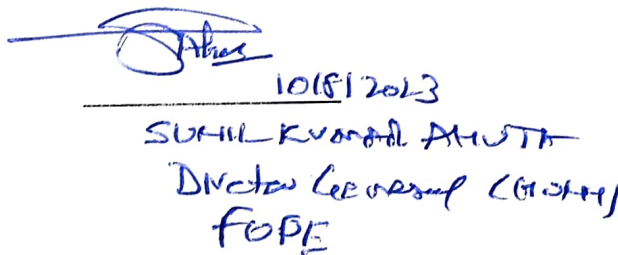 10/8/2023
SUNIL KUMAR AHUJA
Director General
FOPE